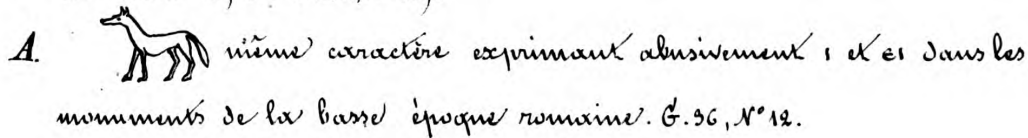 A. même caractère exprimant abusivement ı et ϵı dans les
monuments de la basse époque romaine. G. 96, N° 12.